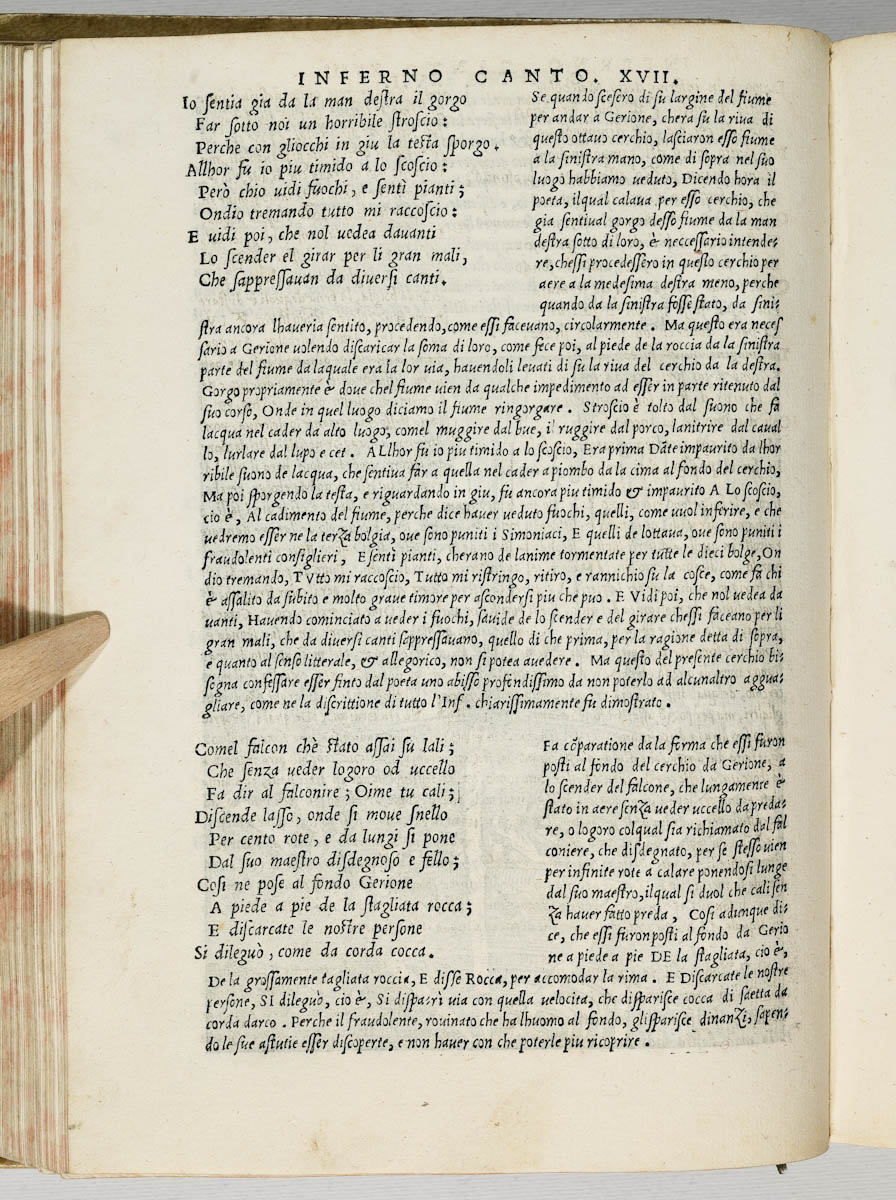 INFERNO CANTO. XVII.
Io sentia gia da la man destra il gorgo
Far sotto noi un horribile stroscio:
Perche con gliocchi in giu la testa sporgo.
Allhor fu io piu timido a lo scoscio:
Però chio uidi fuochi, e sentì pianti;
Ondio tremando tutto mi raccoscio:
E uidi poi, che nol uedea dauanti
Lo scender el girar per li gran mali,
Che sappressauan da diuersi canti.
Se quando scesero di su largine del fiume
per andar a Gerione, chera su la riua di
questo ottauo cerchio, lasciaron esso fiume
a la sinistra mano, come di sopra nel suo
luogo habbiamo ueduto, Dicendo hora il
poeta, ilqual calaua per esso cerchio, che
gia sentiual gorgo desso fiume da la man
destra sotto di loro, è neccessario intende-
re, chessi procedessero in questo cerchio per
aere a la medesima destra meno, perche
quando da la sinistra fosse stato, da sini-
stra ancora lhaueria sentito, procedendo, come essi faceuano, circolarmente. Ma questo era neces
sario a Gerione uolendo discaricar la soma di loro, come fece poi, al piede de la roccia da la sinistra
parte del fiume da laquale era la lor uia, hauendoli leuati di su la riua del cerchio da la destra.
Gorgo propriamente è doue chel fiume uien da qualche impedimento ad esser in parte ritenuto dal
suo corso, Onde in quel luogo diciamo il fiume ringorgare. Stroscio è tolto dal suono che fa
lacqua nel cader da alto luogo, comel muggire dal bue, il ruggire dal porco, lanitrire dal caual
lo, lurlare dal lupo e cet. ALlhor fu io piu timido a lo scoscio, Era prima Dāte impaurito da lhor
ribile suono de lacqua, che sentiua far a quella nel cader a piombo da la cima al fondo del cerchio,
Ma poi sporgendo la testa, e riguardando in giu, fu ancora piu timido & impaurito A Lo scoscio,
cio è, Al cadimento del fiume, perche dice hauer ueduto fuochi, quelli, come uuol inferire, e che
uedremo esser ne la terza bolgia, oue sono puniti i Simoniaci, E quelli de lottaua, oue sono puniti i
fraudolenti consiglieri, E sentì pianti, cherano de lanime tormentate per tutte le dieci bolge, On
dio tremando, TVtto mi raccoscio, Tutto mi ristringo, ritiro, e rannichio su la cosce, come fa chi
è assalito da subito e molto graue timore per ascondersi piu che puo. E Vidi poi, che nol uedea da
uanti, Hauendo cominciato a ueder i fuochi, sauide de lo scender e del girare chessi faceano per li
gran mali, che da diuersi canti sappressauano, quello di che prima, per la ragione detta di sopra,
e quanto al senso litterale, & allegorico, non si potea auedere. Ma questo del presente cerchio bi-
sogna confessare esser finto dal poeta uno abisso profondissimo da non poterlo ad alcunaltro aggua-
gliare, come ne la discrittione di tutto l'Inf. chiarissimamente fu dimostrato.
Comel falcon chè stato assai su lali;
Che senza ueder logoro od uccello
Fa dir al falconire; Oime tu cali;
Discende lasso, onde si moue snello
Per cento rote, e da lungi si pone
Dal suo maestro disdegnoso e fello;
Cosi ne pose al fondo Gerione
A piede a pie de la stagliata rocca;
E discarcate le nostre persone
Si dileguò, come da corda cocca.
Fa cōparatione da la forma che essi furon
posti al fondo del cerchio da Gerione, a
lo scender del falcone, che lungamente è
stato in aere senza ueder uccello da preda-
re, o logoro colqual sia richiamato dal fal
coniere, che disdegnato, per se stesso uien
per infinite rote a calare ponendosi lunge
dal suo maestro, ilqual si duol che cali sen
za hauer fatto preda, Cosi adunque di-
ce, che essi furon posti al fondo da Gerio
ne a piede a pie DE la stagliata, cio è,
De la grossamente tagliata roccia, E disse Rocca, per accomodar la rima. E Discarcate le nostre
persone, SI dileguò, cio è, Si disparì uia con quella velocita, che disparisce cocca di saetta da
corda darco. Perche il fraudolente, rouinato che ha lhuomo al fondo, glisparisce dinanzi, sapen-
do le sue astutie esser discoperte, e non hauer con che poterle piu ricoprire.